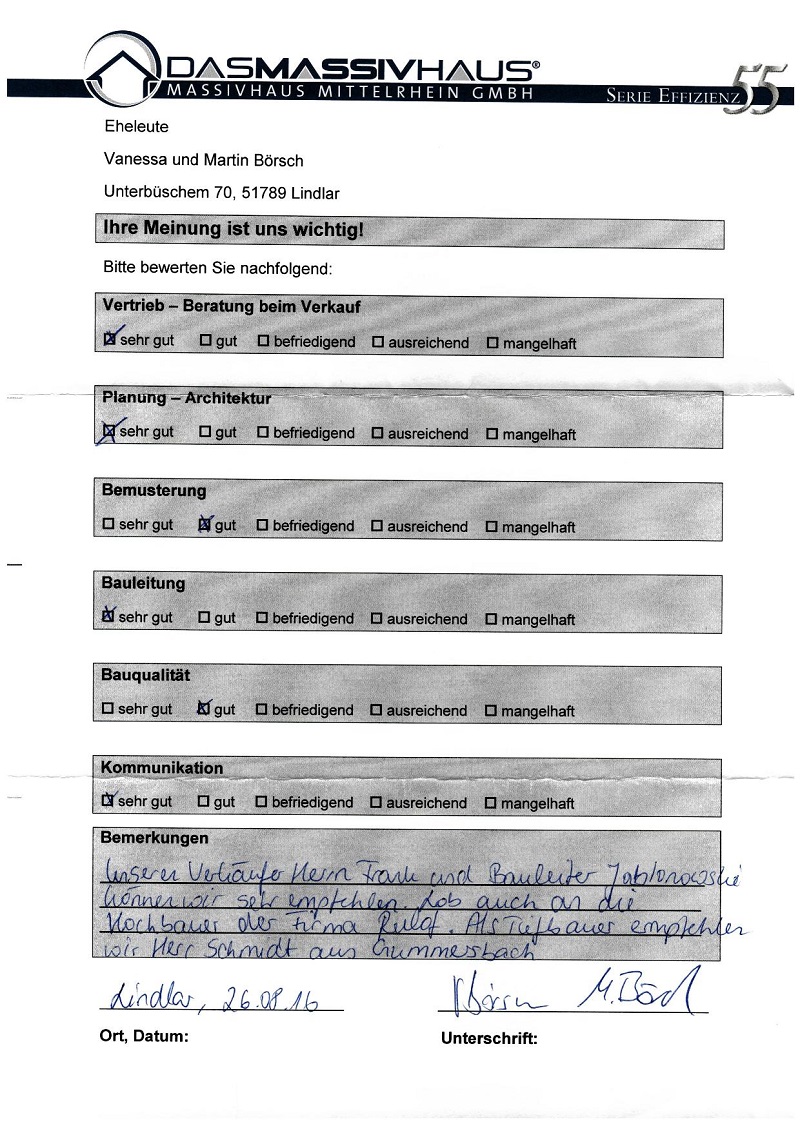 DASMASSIVHAUS®
MASSIVHAUS MITTELRHEIN GMBH
SERIE EFFIZIENZ 55
Eheleute
Vanessa und Martin Börsch
Unterbüschem 70, 51789 Lindlar
Ihre Meinung ist uns wichtig!
Bitte bewerten Sie nachfolgend:
Vertrieb – Beratung beim Verkauf
☒ sehr gut ☐ gut ☐ befriedigend ☐ ausreichend ☐ mangelhaft
Planung – Architektur
☒ sehr gut ☐ gut ☐ befriedigend ☐ ausreichend ☐ mangelhaft
Bemusterung
☐ sehr gut ☒ gut ☐ befriedigend ☐ ausreichend ☐ mangelhaft
Bauleitung
☒ sehr gut ☐ gut ☐ befriedigend ☐ ausreichend ☐ mangelhaft
Bauqualität
☐ sehr gut ☒ gut ☐ befriedigend ☐ ausreichend ☐ mangelhaft
Kommunikation
☒ sehr gut ☐ gut ☐ befriedigend ☐ ausreichend ☐ mangelhaft
Bemerkungen
Unseren Verkäufer Herrn Frank und Bauleiter Jablonowski
können wir sehr empfehlen. Lob auch an die
Hochbauer der Firma. Als Tiefbauer empfehlen
wir Herr Schmidt aus Gummersbach
Lindlar, 26.08.16
VBörsch M.Börsch
Ort, Datum:
Unterschrift: